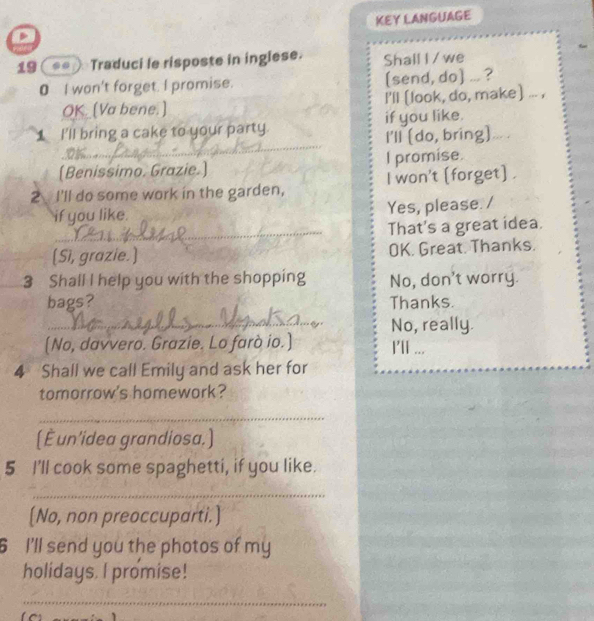 KEY LANGUAGE
19 Traduci le risposte in inglese.
0 I won't forget. I promise.
OK. (Va bene.)
1 I'll bring a cake to your party.
OK
(Benissimo. Grazie.)
2 I'll do some work in the garden,
if you like.
Yes, please
(Sì, grazie.)
3 Shall I help you with the shopping
bags?
No,
(No, davvero. Grazie. Lo farò io.)
4 Shall we call Emily and ask her for
tomorrow's homework?
(È un'idea grandiosa.)
5 I'll cook some spaghetti, if you like.
(No, non preoccuparti.)
6 I'll send you the photos of my
holidays. I promise!
Shall I / we
(send, do) ... ?
I'll (look, do, make) ... ,
if you like.
I'll (do, bring) ... .
I promise.
I won't (forget) .
Yes, please. /
That's a great idea.
OK. Great. Thanks.
No, don't worry.
Thanks.
No, really.
I'll ...